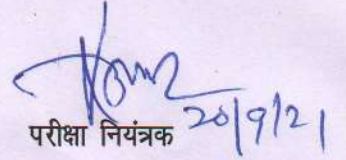 20/9/21
परीक्षा नियंत्रक